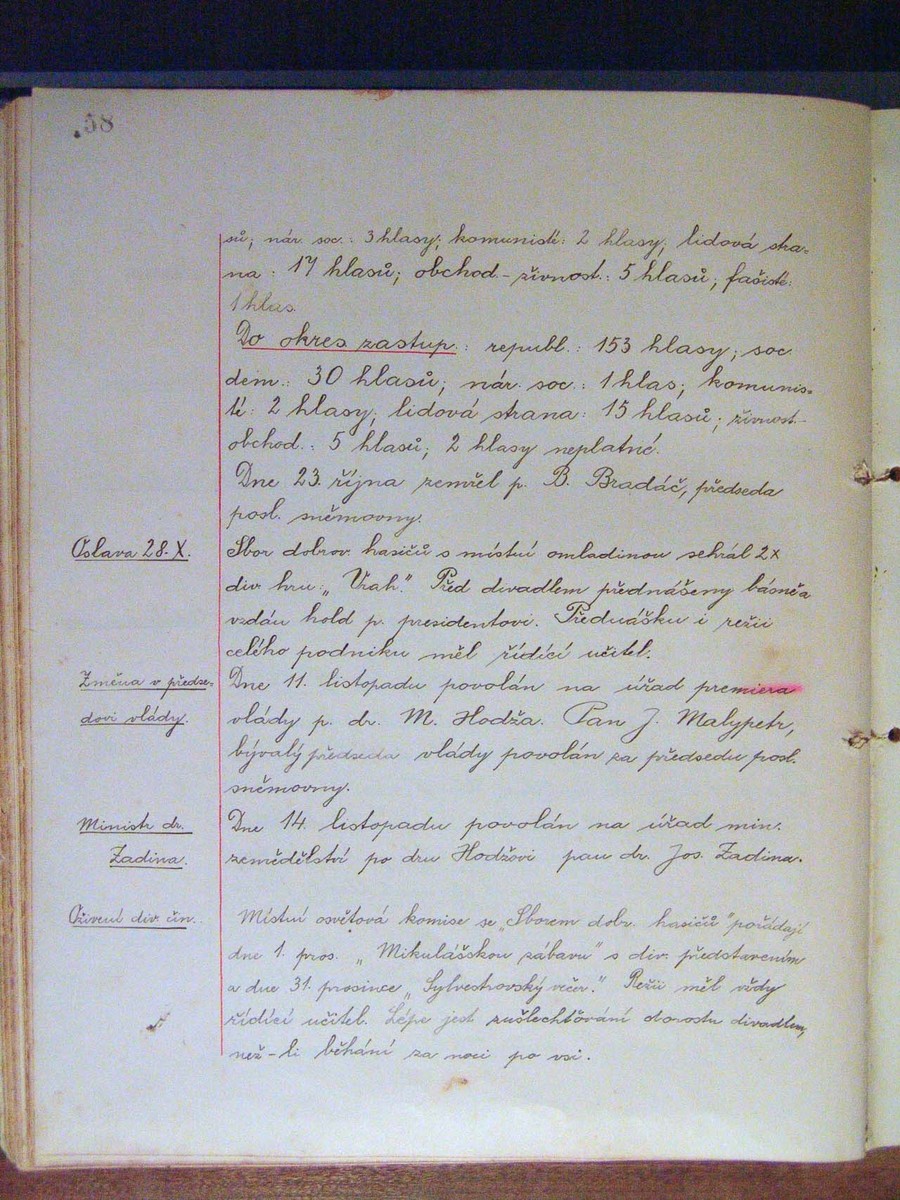 58
sů; nár. soc.: 3 hlasy; komunisté: 2 hlasy; lidová stra-
na: 17 hlasů; obchod.-živnost.: 5 hlasů; fašisté:
1 hlas.
Do okres zastup.: republ.: 153 hlasy; soc.
dem.: 30 hlasů; nár. soc.: 1 hlas; komunis-
té: 2 hlasy; lidová strana: 15 hlasů; živnost.-
obchod.: 5 hlasů; 2 hlasy neplatné.
Dne 23. října zemřel p. B. Bradáč, předseda
posl. sněmovny.
Oslava 28. X.
Sbor dobrov. hasičů s místní omladinou sehrál 2x
div. hru: „Vrah". Před divadlem přednášeny básně a
vzdán hold p. presidentovi. Přednášku i režii
celého podniku měl řídící učitel.
Změna v předse-
dovi vlády.
Dne 11. listopadu povolán na úřad premiera
vlády p. dr. M. Hodža. Pan J. Malypetr,
bývalý předseda vlády povolán za předsedu posl.
sněmovny.
Ministr dr.
Zadina.
Dne 14. listopadu povolán na úřad min.
zemědělství po dru Hodžovi pan dr. Jos. Zadina.
Oživení div. čin.
Místní osvětová komise se „Sborem dobr. hasičů" pořádají
dne 1. pros. „Mikulášskou zábavu" s div. představením
a dne 31. prosince „Sylvestrovský večer." Režii měl vždy
řídící učitel. Lépe jest zušlechťování dorostu divadlem,
než-li běhání za noci po vsi.